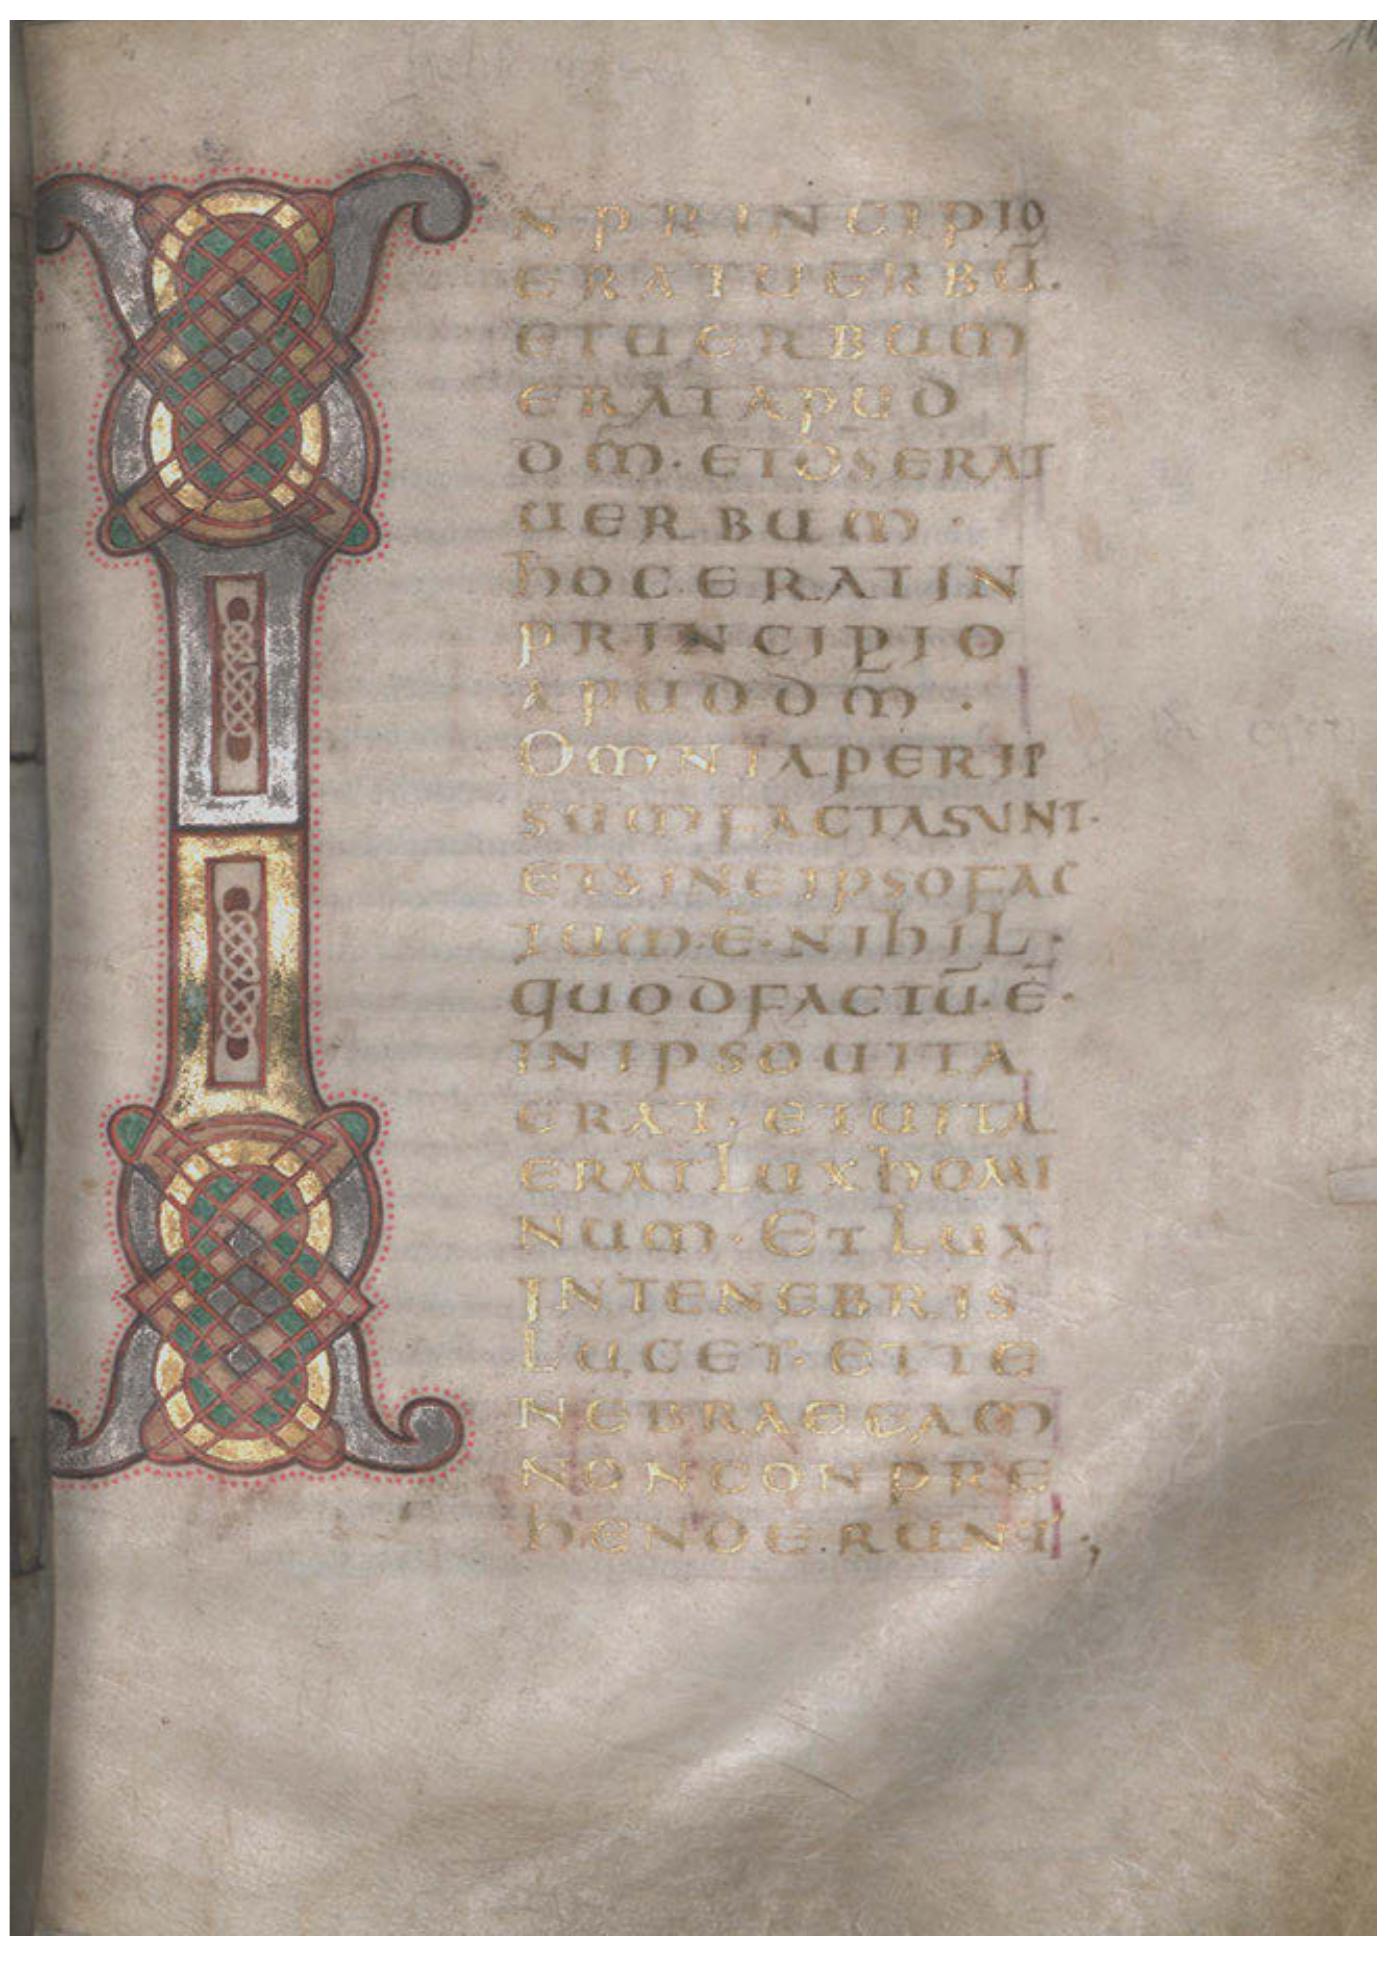 IN PRINCIPIO
ERAT UERBŪ.
ET UERBUM
ERAT APUD
DM̄. ET DS ERAT
UERBUM.
HOC ERAT IN
PRINCIPIO
APUD DM̄.
OMNIA PER IP
SUM FACTA SUNT.
ET SINE IPSO FAC
TUM. Ē. NIHIL.
QUOD FACTŪ. Ē.
IN IPSO UITA
ERAT. ET UITA
ERAT LUX HOMI
NUM. ET LUX
IN TENEBRIS
LUCET. ET TE
NEBRAE EAM
NON CONPRE
HENDERUNT;